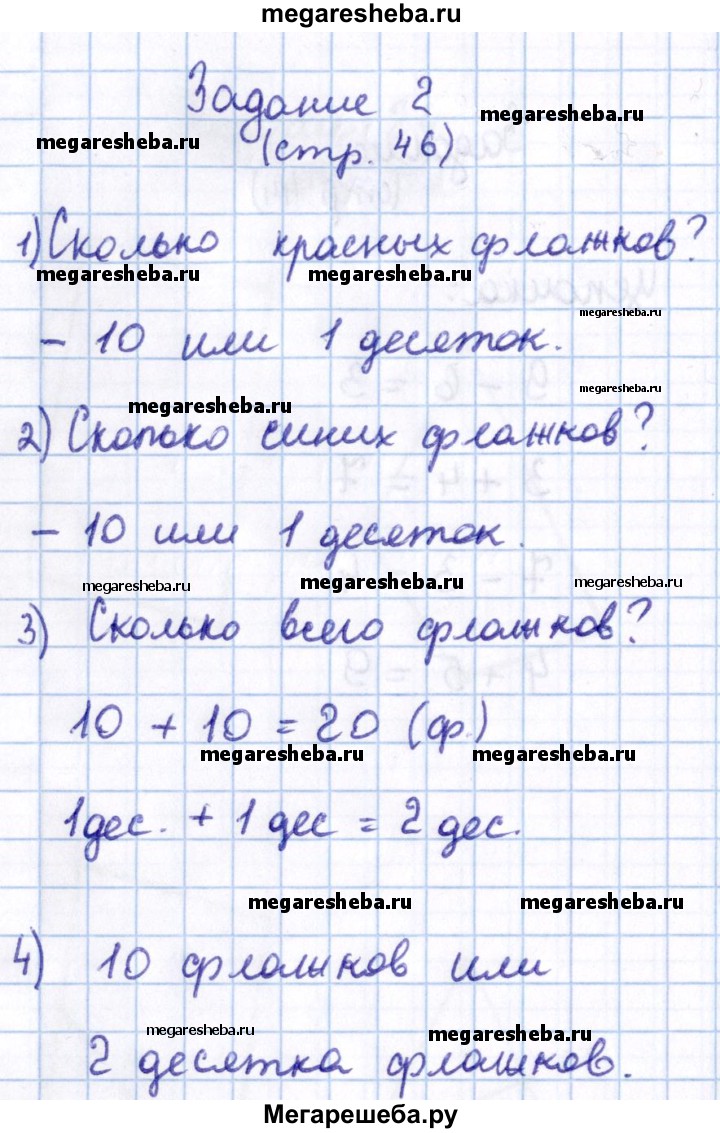 megaresheba.ru
Задание 2
megaresheba.ru
megaresheba.ru
(стр. 46)
1) Сколько красных флажков?
megaresheba.ru megaresheba.ru
megaresheba.ru
- 10 или 1 десяток.
megaresheba.ru
megaresheba.ru
2) Сколько синих флажков?
- 10 или 1 десяток.
megaresheba.ru megaresheba.ru megaresheba.ru
3) Сколько всего флажков?
10 + 10 = 20 (ф.)
megaresheba.ru megaresheba.ru
1 дес. + 1 дес = 2 дес.
megaresheba.ru megaresheba.ru
4) 10 флажков или
megaresheba.ru megaresheba.ru
2 десятка флажков.
Мегарешеба.ру